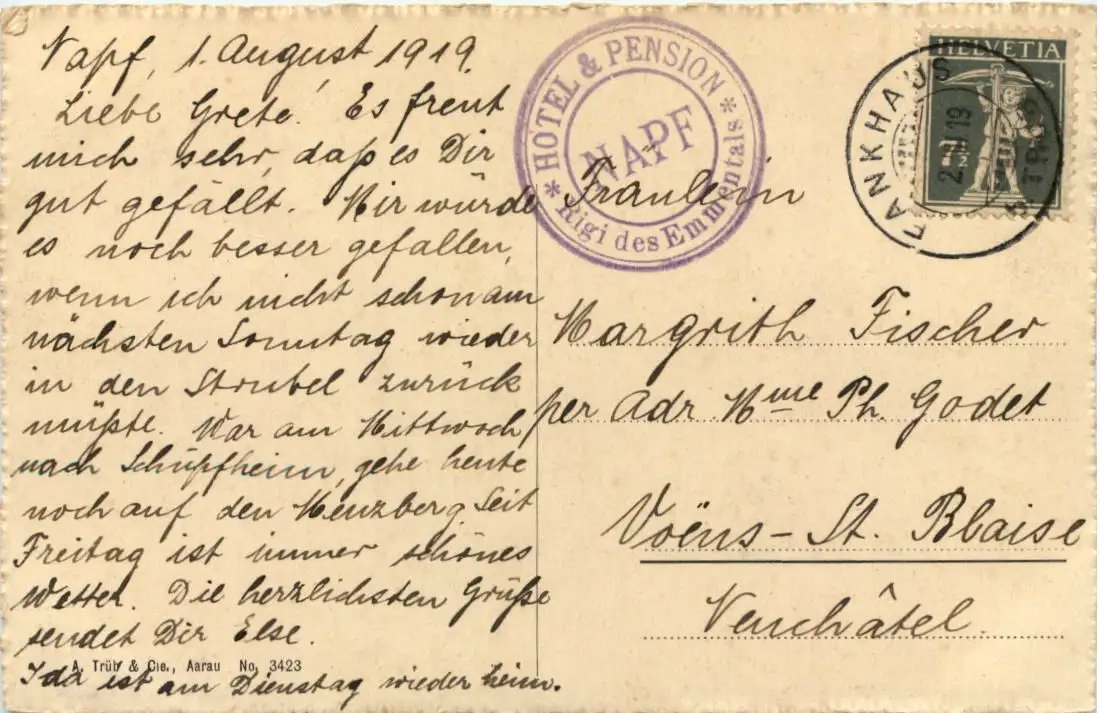 Napf, 1. August 1919.
Liebe Grete! Es freut
mich sehr, daß es Dir
gut gefällt. Mir würde
es noch besser gefallen,
wenn ich nicht schon am
nächsten Sonntag wieder
in den Strubel zurück
müßte. War am Mittwoch
nach Schüpfheim, gehe heute
noch auf den Menzberg. Seit
Freitag ist immer schönes
Wetter. Die herzlichsten Grüße
sendet Dir Else.
A. Trüb & Cie., Aarau No. 3423
Ida ist am Dienstag wieder heim.
* HÔTEL & PENSION *
NAPF
Rigi des Emmentals
HELVETIA
7½
FANKHAUS
2. VIII 19
Fräulein
Margrith Fischer
per Adr. Mme Ph. Godet
Voëns - St. Blaise
Neuchâtel.